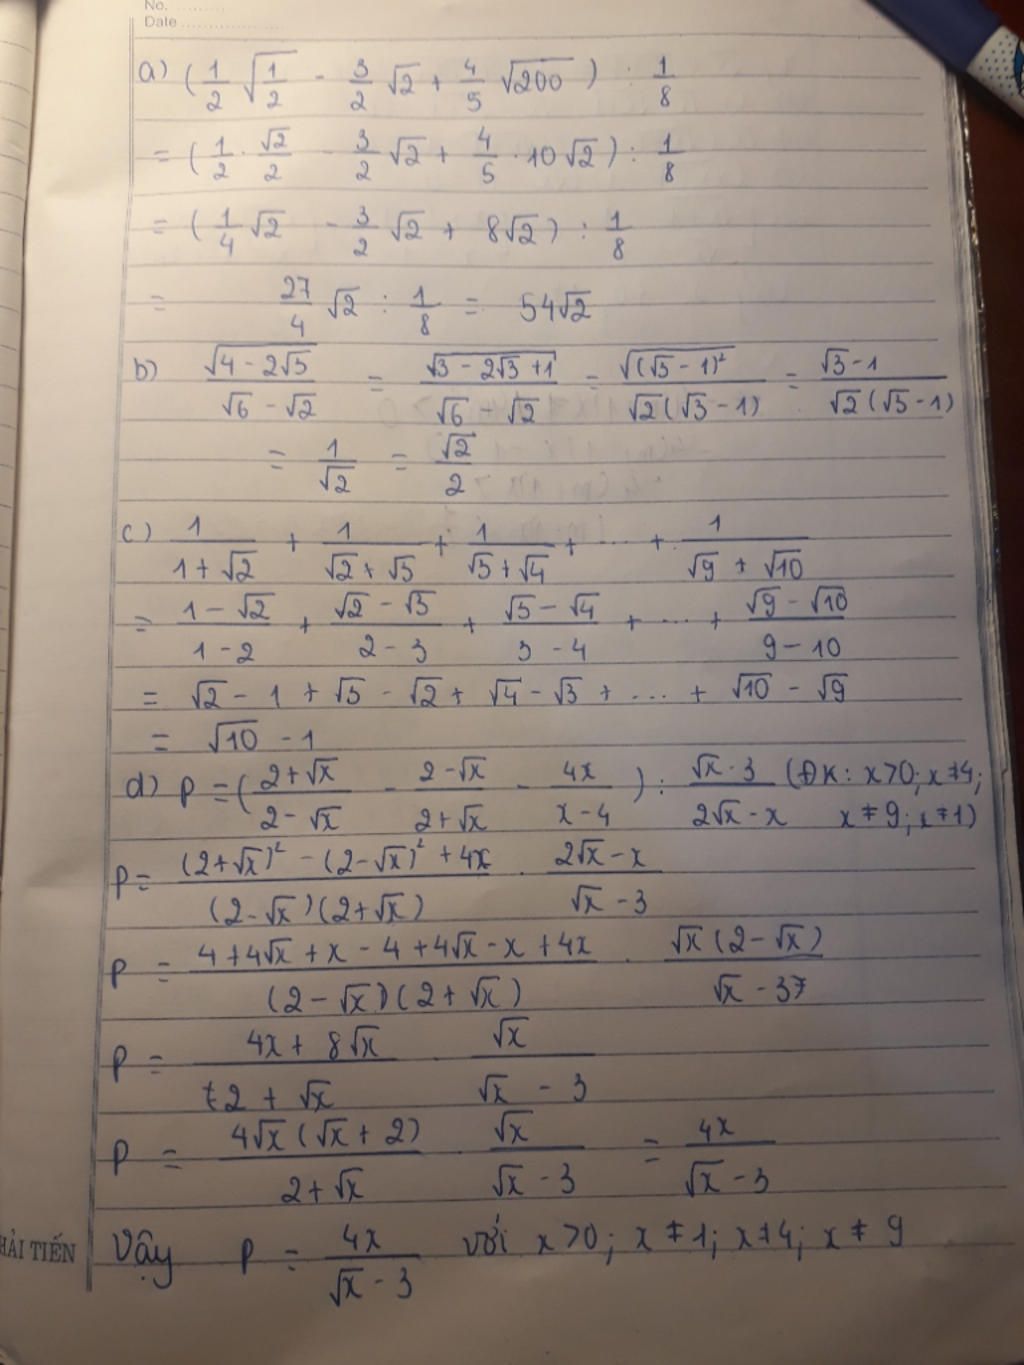 No. ..........
Date ..................
a) (1/2 √(1/2) - 3/2 √2 + 4/5 √200) : 1/8
= (1/2 · √2/2 - 3/2 √2 + 4/5 · 10√2) : 1/8
= (1/4 √2 - 3/2 √2 + 8√2) : 1/8
= 27/4 √2 : 1/8 = 54√2
b) √(4 - 2√3)/(√6 - √2) = √(3 - 2√3 + 1)/(√6 - √2) = √((√3 - 1)²)/(√2(√3 - 1)) = (√3 - 1)/(√2(√3 - 1))
= 1/√2 = √2/2
c) 1/(1 + √2) + 1/(√2 + √3) + 1/(√3 + √4) + ... + 1/(√9 + √10)
= (1 - √2)/(1 - 2) + (√2 - √3)/(2 - 3) + (√3 - √4)/(3 - 4) + ... + (√9 - √10)/(9 - 10)
= √2 - 1 + √3 - √2 + √4 - √3 + ... + √10 - √9
= √10 - 1
d) P = ((2 + √x)/(2 - √x) - (2 - √x)/(2 + √x) - 4x/(x - 4)) : (√x - 3)/(2√x - x) (ĐK: x > 0; x ≠ 4;
x ≠ 9; x ≠ 1)
P = ((2 + √x)² - (2 - √x)² + 4x)/((2 - √x)(2 + √x)) · (2√x - x)/(√x - 3)
P = (4 + 4√x + x - 4 + 4√x - x + 4x)/((2 - √x)(2 + √x)) · √x(2 - √x)/(√x - 3)
P = (4x + 8√x)/(2 + √x) · √x/(√x - 3)
P = 4√x(√x + 2)/(2 + √x) · √x/(√x - 3) = 4x/(√x - 3)
Vậy P = 4x/(√x - 3) với x > 0; x ≠ 1; x ≠ 4; x ≠ 9
HẢI TIẾN